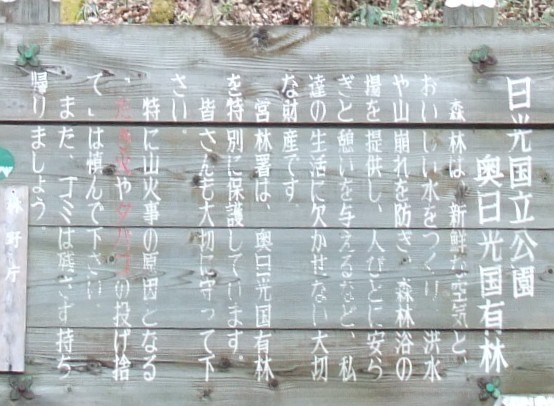 日光国立公園
奥日光国有林
森林は、新鮮な空気と、
おいしい水をつくり、洪水
や山崩れを防ぎ、森林浴の
場を提供し、人びとに安ら
ぎと憩いを与えるなど、私
達の生活に欠かせない大切
な財産です
営林署は、奥日光国有林
を特別に保護しています。
皆さんも大切に守って下
さい。
特に山火事の原因となる
、たき火やタバコの投げ捨
て」は慎んで下さい
また、ゴミは残さず持ち
帰りましょう。